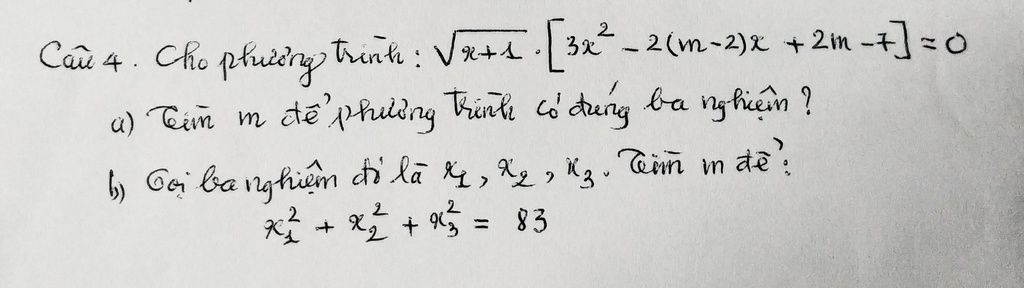 Câu 4. Cho phương trình: √x+1 . [3x² - 2(m-2)x + 2m - 7] = 0
a) Tìm m để phương trình có đúng ba nghiệm?
b) Gọi ba nghiệm đó là x₁, x₂, x₃. Tìm m để:
x₁² + x₂² + x₃² = 83